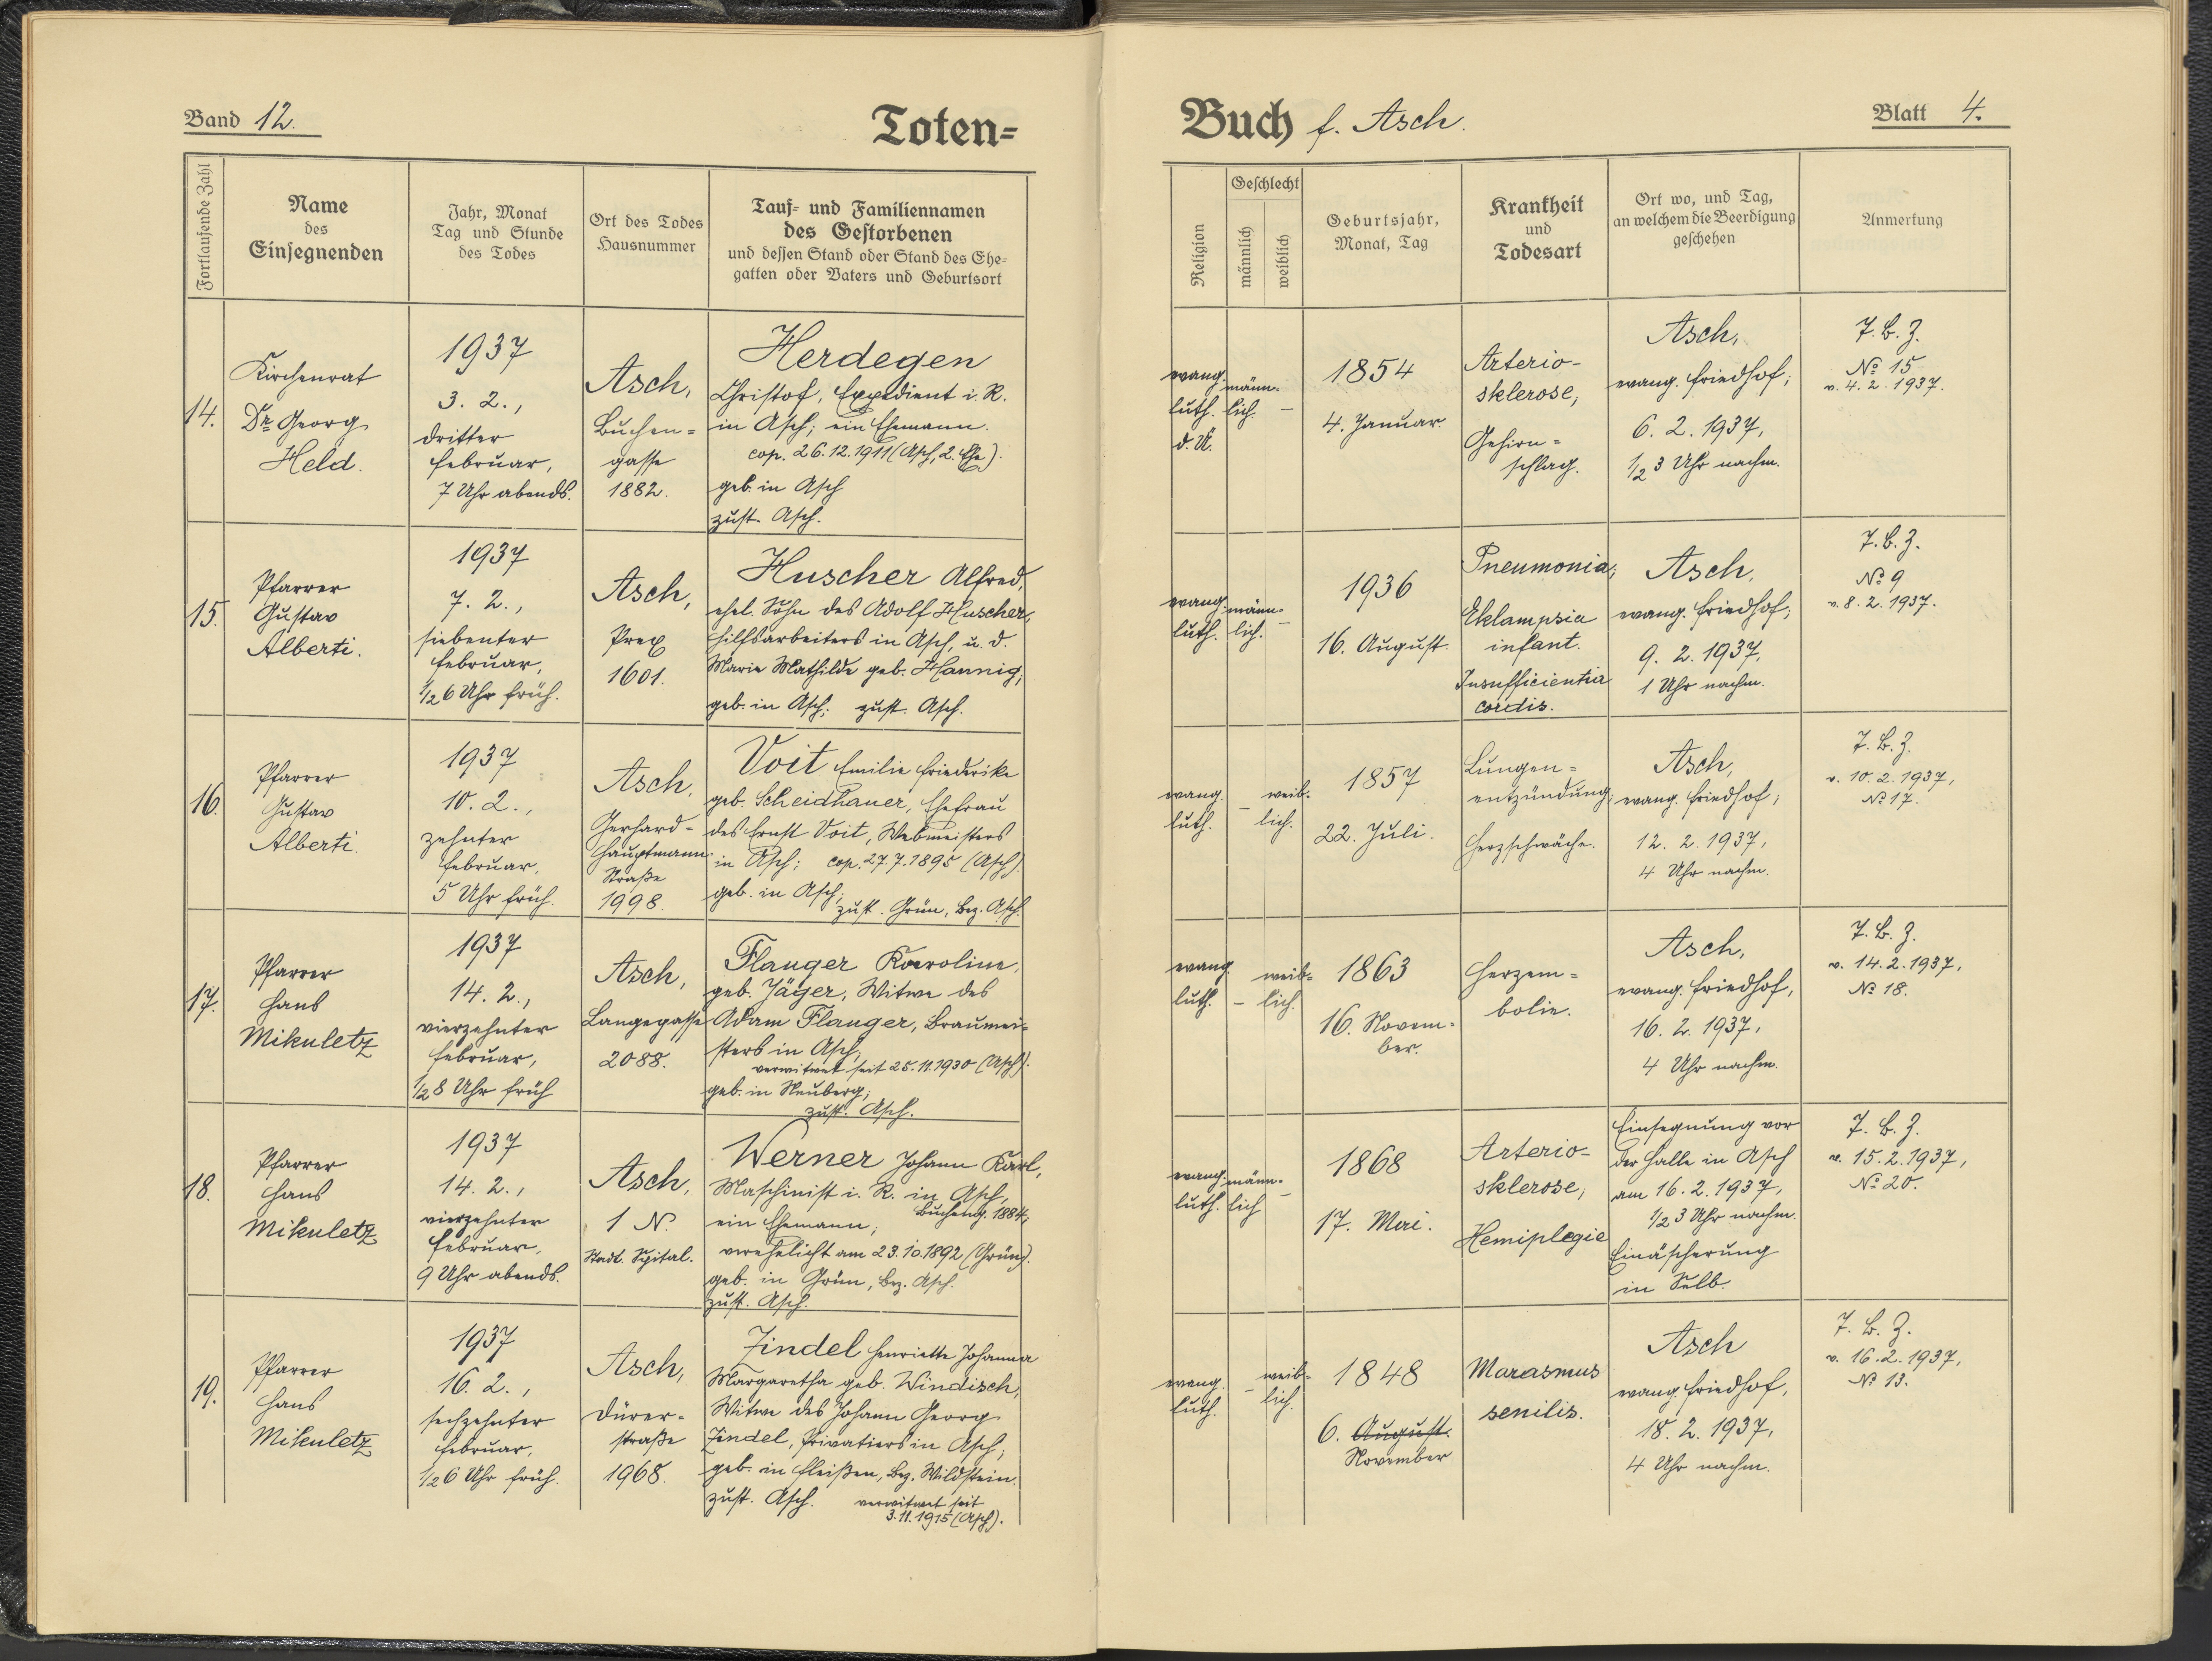 Band 12.
Toten=
Fortlaufende Zahl
Name
des
Einsegnenden
Jahr, Monat
Tag und Stunde
des Todes
Ort des Todes
Hausnummer
Tauf= und Familiennamen
des Gestorbenen
und dessen Stand oder Stand des Ehe=
gatten oder Vaters und Geburtsort
14.
Kirchenrat
Dr. Georg
Held.
1937
3. 2.,
dritter
Februar,
7 Uhr abends.
Asch,
Buchen=
gasse
1882.
Herdegen
Christof, Expedient i. R.
in Asch; ein Ehemann.
cop. 26.12.1911 (Asch, 2. Ehe).
geb. in Asch
zust. Asch.
15.
Pfarrer
Gustav
Alberti.
1937
7. 2.,
siebenter
Februar,
1/2 6 Uhr früh.
Asch,
Prex
1601.
Huscher Alfred,
ehel. Sohn des Adolf Huscher,
Hilfsarbeiters in Asch, u. d.
Marie Mathilde geb. Hannig;
geb. in Asch; zust. Asch.
16.
Pfarrer
Gustav
Alberti.
1937
10. 2.,
zehnter
Februar,
5 Uhr früh.
Asch,
Gerhard=
Hauptmann=
Straße
1998.
Voit Emilie Friederike
geb. Scheidhauer, Ehefrau
des Ernst Voit, Webmeisters
in Asch; cop. 27.7.1895 (Asch).
geb. in Asch;
zust. Grün, Bez. Asch.
17.
Pfarrer
Hans
Mikuletz
1937
14. 2.,
vierzehnter
Februar,
1/2 8 Uhr früh
Asch,
Langegasse
2088.
Flauger Karoline,
geb. Jäger, Witwe des
Adam Flauger, Braumei=
sters in Asch;
verwitwet seit 25.11.1930 (Asch).
geb. in Neuberg;
zust. Asch.
18.
Pfarrer
Hans
Mikuletz
1937
14. 2.,
vierzehnter
Februar,
9 Uhr abends.
Asch,
1 N.
Städt. Spital.
Werner Johann Karl,
Maschinist i. R. in Asch,
Bucheng. 1884;
ein Ehemann;
verehelicht am 23.10.1892 (Grün).
geb. in Grün, Bez. Asch.
zust. Asch.
19.
Pfarrer
Hans
Mikuletz
1937
16. 2.,
sechzehnter
Februar,
1/2 6 Uhr früh.
Asch,
Dürer=
straße
1968.
Zindel Henriette Johanna
Margaretha geb. Windisch,
Witwe des Johann Georg
Zindel, Privatiers in Asch;
geb. in Fleißen, Bez. Wildstein.
zust. Asch. verwitwet seit
3.11.1915 (Asch).
Buch f. Asch.
Blatt 4.
Religion
Geschlecht
männlich
weiblich
Geburtsjahr,
Monat, Tag
Krankheit
und
Todesart
Ort wo, und Tag,
an welchem die Beerdigung
geschehen
Anmerkung
evang.
luth.
d. A.
männ=
lich.
–
1854
4. Januar.
Arterio-
sklerose,
Gehirn=
schlag.
Asch,
evang. Friedhof;
6. 2. 1937,
1/2 3 Uhr nachm.
T. B. Z.
№ 15
v. 4. 2. 1937.
evang.
luth.
männ=
lich.
–
1936
16. August.
Pneumonia;
Eklampsia
infant.
Insufficientia
cordis.
Asch,
evang. Friedhof;
9. 2. 1937,
1 Uhr nachm.
T. B. Z.
№ 9
v. 8. 2. 1937.
evang.
luth.
–
weib=
lich.
1857
22. Juli.
Lungen=
entzündung;
Herzschwäche.
Asch,
evang. Friedhof;
12. 2. 1937,
4 Uhr nachm.
T. B. Z.
v. 10. 2. 1937,
№ 17.
evang.
luth.
–
weib=
lich.
1863
16. Novem=
ber.
Herzem=
bolie.
Asch,
evang. Friedhof,
16. 2. 1937,
4 Uhr nachm.
T. B. Z.
v. 14. 2. 1937,
№ 18.
evang.
luth.
männ=
lich
–
1868
17. Mai.
Arterio-
sklerose;
Hemiplegie
Einsegnung vor
der Halle in Asch
am 16. 2. 1937,
1/2 3 Uhr nachm.
Einäscherung
in Selb.
T. B. Z.
v. 15. 2. 1937,
№ 20.
evang.
luth.
–
weib=
lich.
1848
6. August.
November
Marasmus
senilis.
Asch
evang. Friedhof,
18. 2. 1937,
4 Uhr nachm.
T. B. Z.
v. 16. 2. 1937,
№ 13.